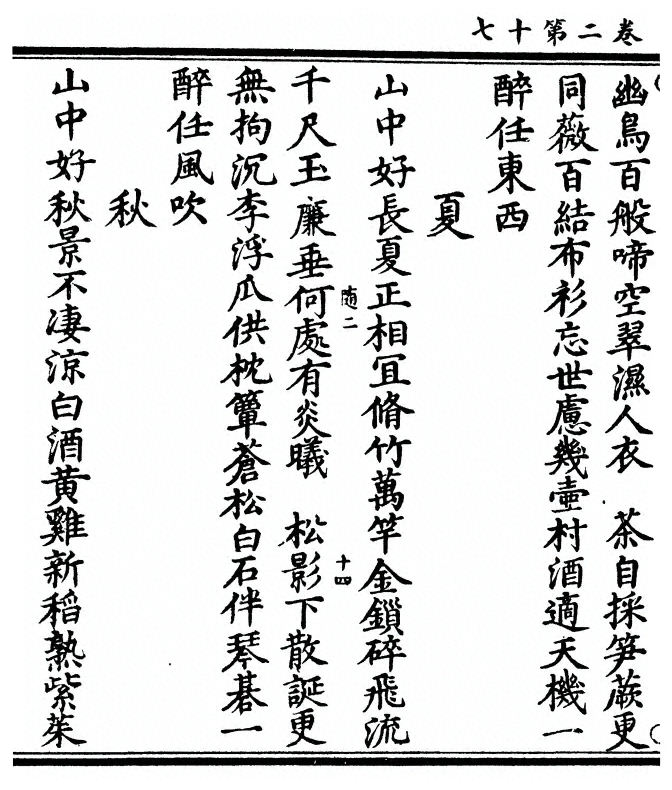 卷二第十七
幽鳥百般啼空翠濕人衣　茶自採笋蕨更
同薇百結布衫忘世慮幾壺村酒適天機一
醉任東西
夏
山中好長夏正相宜脩竹萬竿金鎖碎飛流
千尺玉簾垂何處有炎曦　松影下散誕更
無拘沉李浮瓜供枕簟蒼松白石伴琴碁一
醉任風吹
秋
山中好秋景不凄涼白酒黃雞新稻熟紫茱
随二
十四